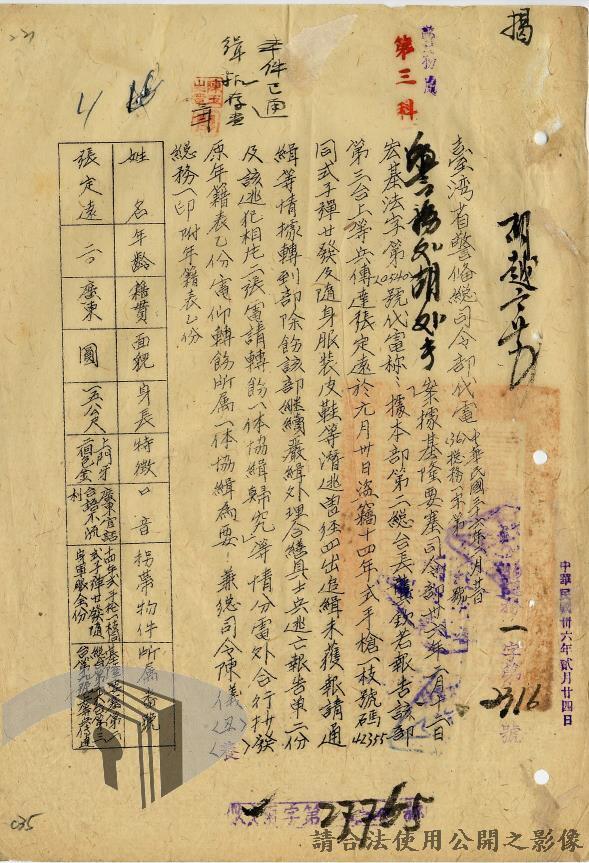 揭
警務處
第三科
臺灣省警備總司令部代電
中華民國三十六年二月廿日
警務處胡处長
案據基隆要塞司令部卅六年二月十二日
宏基法字第0540號代電称:據本部第二總台長
欽若報告該部
第三台上等兵傳達張定遠於元月卅日盗竊十四年式手槍一枝號碼42355
同式子彈廿發及隨身服裝皮鞋等潜逃曾经四出追緝未獲報請通
緝等情據轉到部除飭該部继續嚴緝处理合繕具士兵逃亡報告單二份
及該逃犯相片一張電請轉飭一体協緝歸究」等情分電外合行抄發
原年籍表乙份電仰轉飭所属一体協緝為要 兼總司令陳儀
總務一印附年籍表乙份
本件已通
緝
存查
姓名 年齡 籍貫 面貌 身長 特徵 口音 拐帶物件 所屬番號
張定遠 二〇 廣東 圓 一五公尺 上門牙二個包金 廣東官話台語不流利
中華民國卅六年貳月廿四日
字第2316號
字第27765
221
035
請合法使用公開之影像